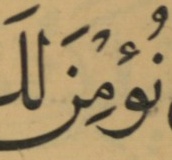 نُؤْمِنَ لَكَ